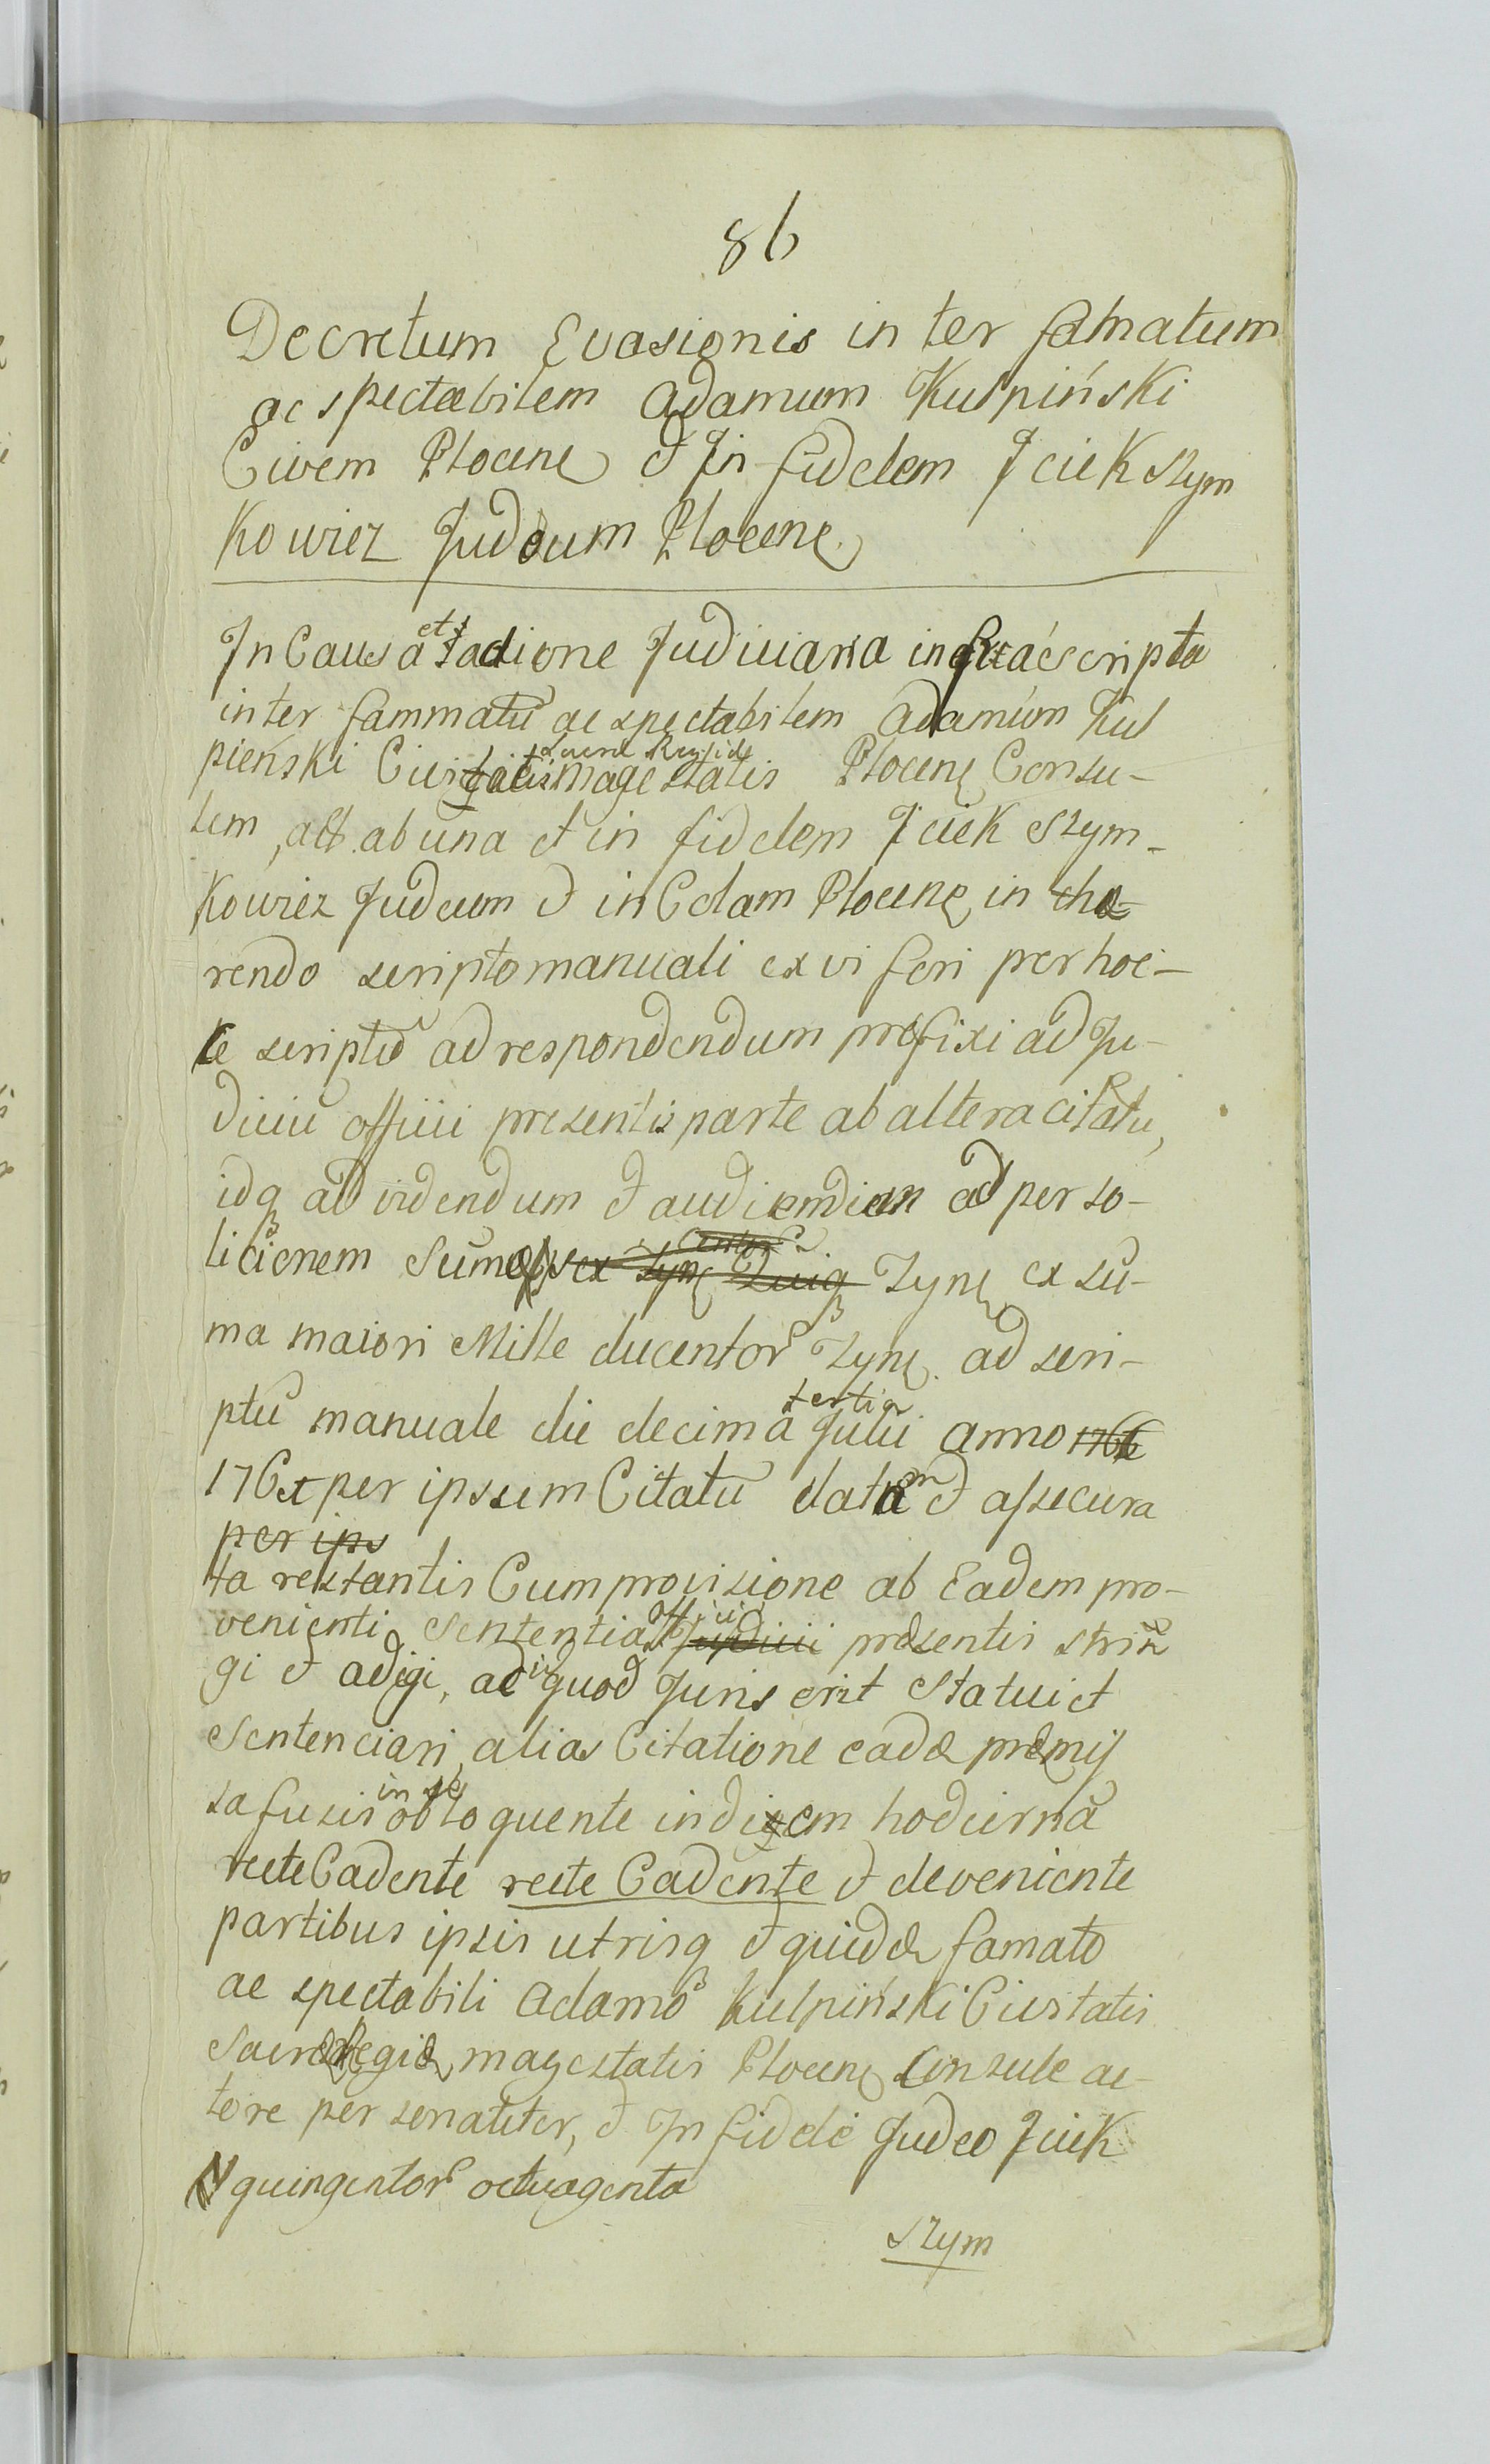 86
Decretum Evasionis inter famatum
ac spectabilem Adamum Kulpiński
Civem Plocen et Infidelem Jciek Szym
kowicz Judeum Plocen.
In Causa et actione Judiciaria infrascripta
inter fammatū ac spectabilem Adamum Kul
pieński Civitatis Sacrae Regiae Magestatis Plocen Consu-
lem, ab una et infidelem Jciek Szym-
kowicz Judeum et incolam Plocen in
rendo scripto manuali ex vi fori per hoc
se scriptū ad respondendum prefixi ad Ju-
diciū officii presentis parte ab altera citatū,
idq ad videndum et audiendum ad perso-
licionem Summae Zyn ex Zyn ex su-
ma maiori Mille ducentor Zyn ad scri-
ptū manuale die decima tertia Julii Anno 1766
176 per ipsum Citatū data et assecura
per ips
ta restantis Cum provisione ab Eadem pro-
venienti Sententia officii Judicii presentis strin
gi et adigi, ad id quod Juris erit Statui et
Sentenciari, alias Citatione eadē premis
sa fusis in se obloquente in diem hodiernā
recte Cadente recte Cadente et deveniente
partibus ipsis utrisq et quidē famato
ac spectabili Adamo Kulpiński Civitatis
Sacrae Regiae magestatis Plocen Consule ac-
tore personaliter, et Infideli Judeo Jciek
quingentor octuagenta
Szym